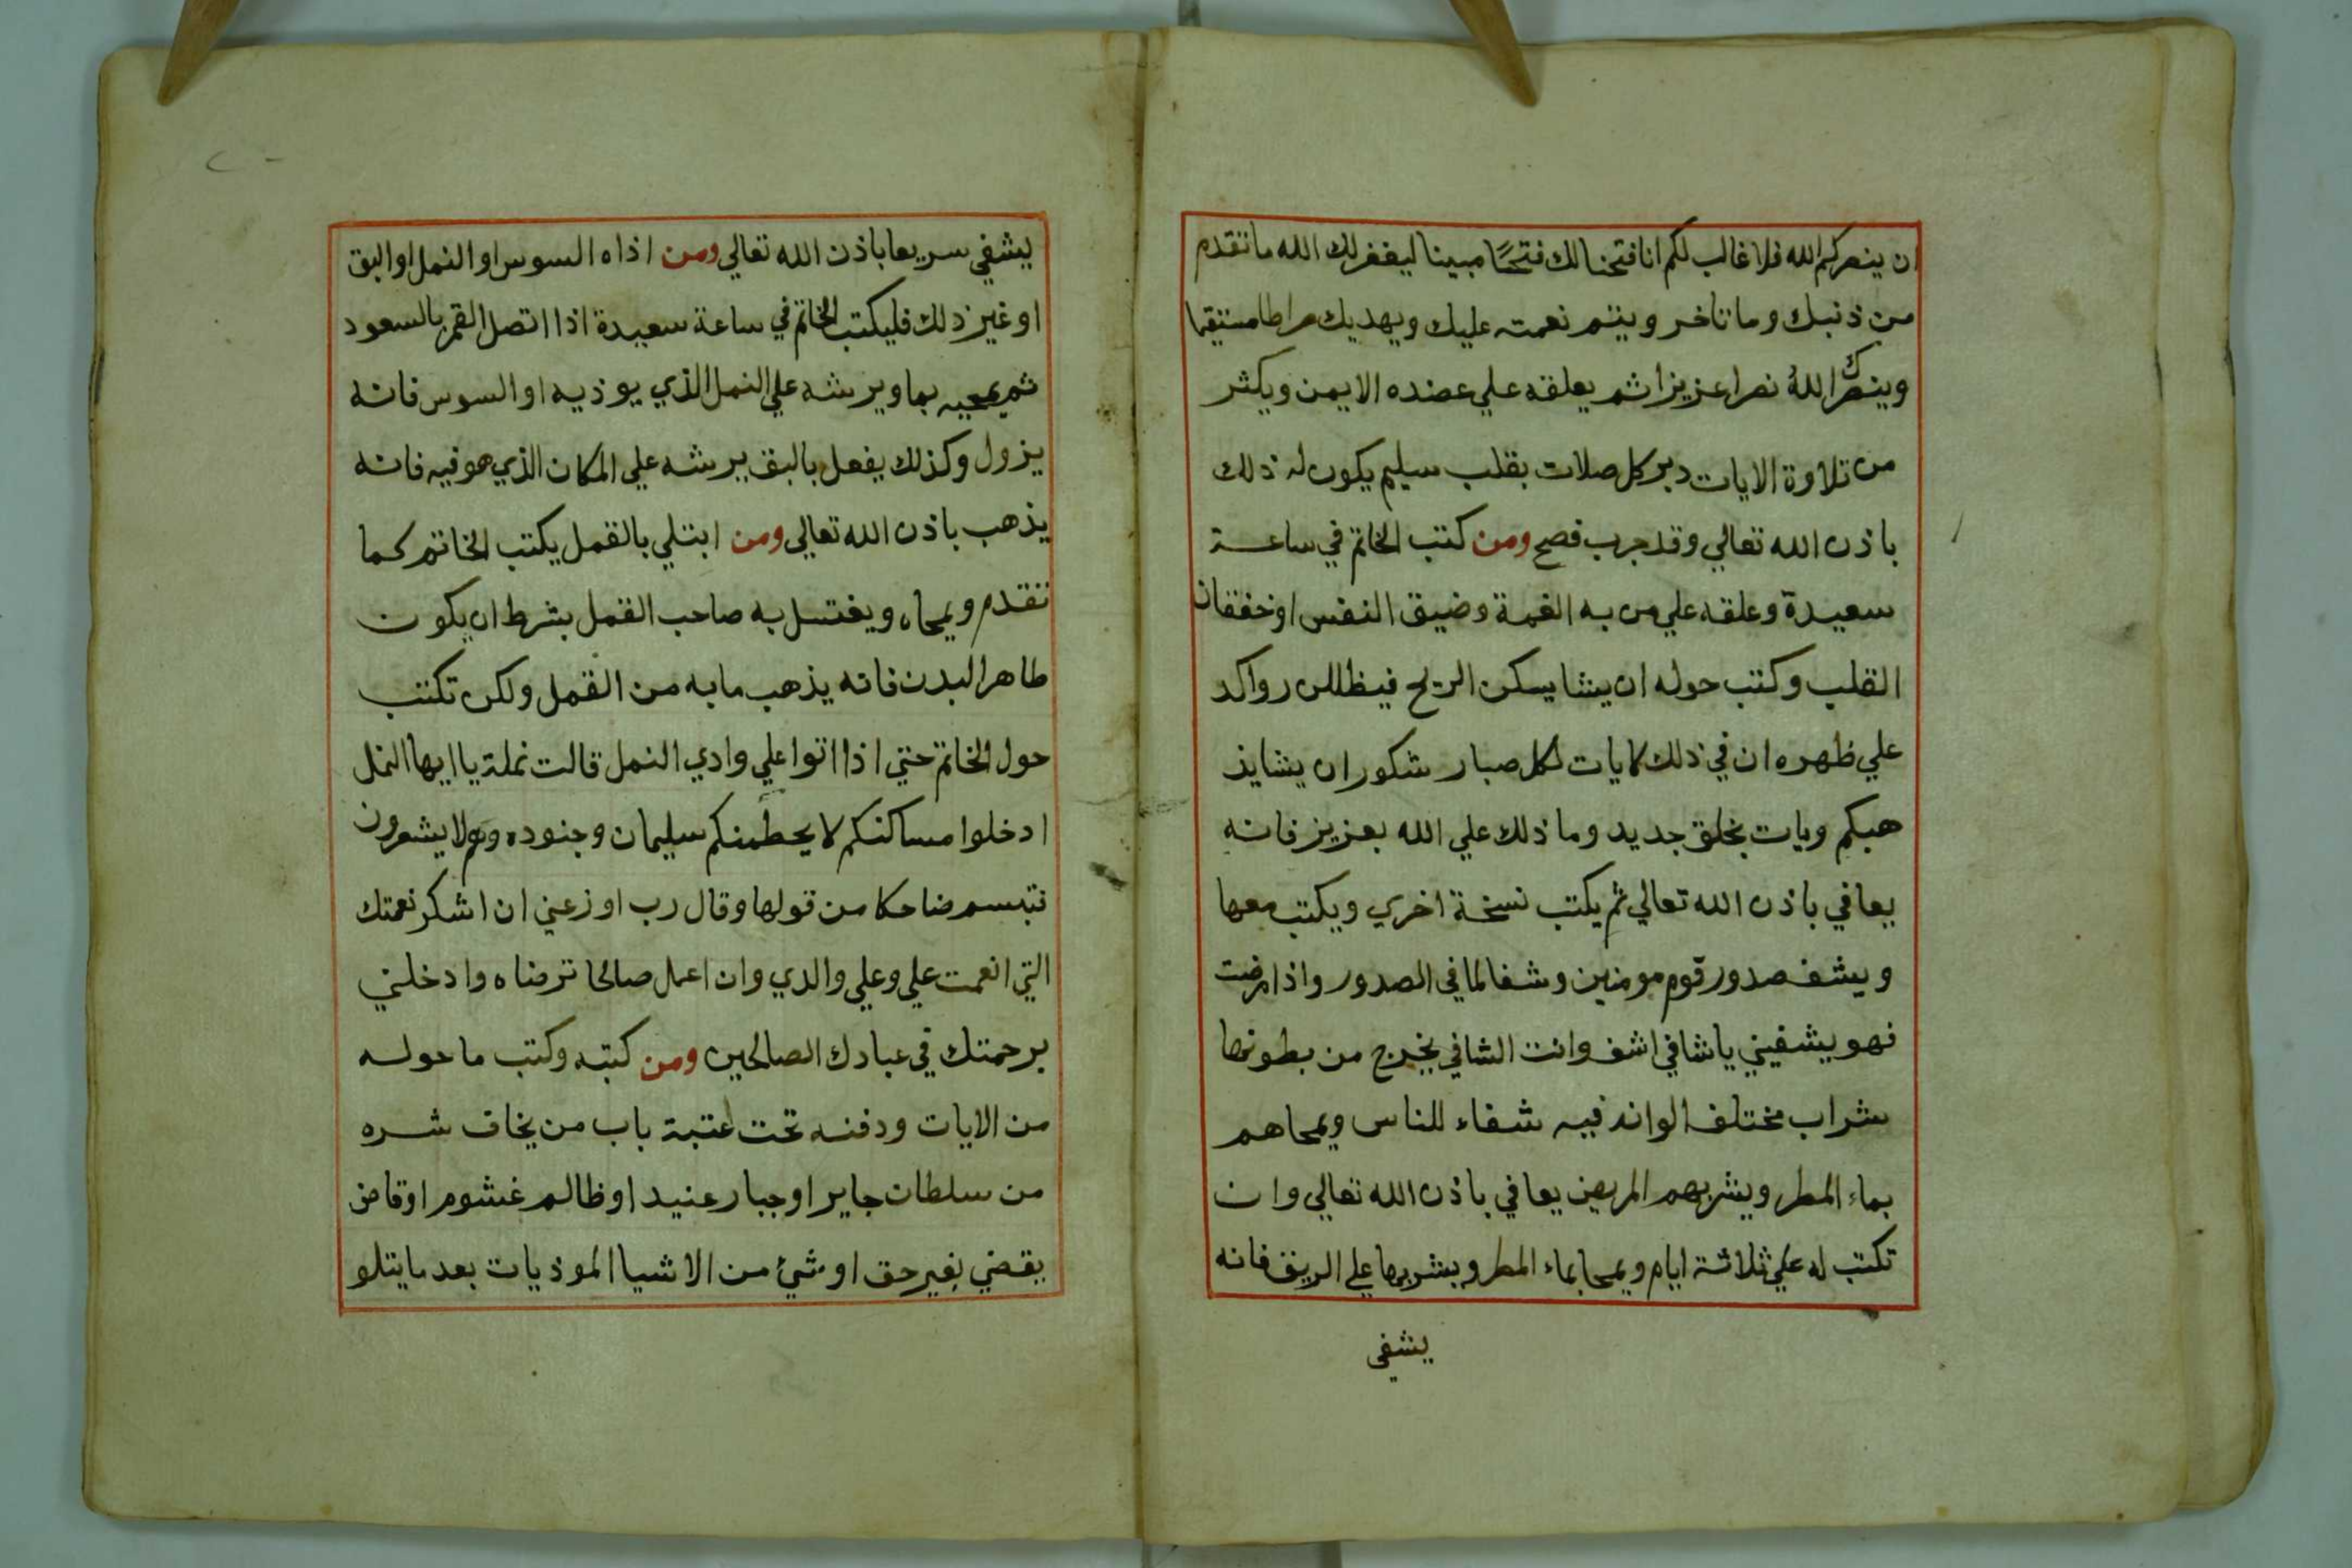 ان ينصركم الله فلا غالب لكم انا فتحنا لك فتحًا مبينا ليغفر لك الله ما تقدم
من ذنبك وما تاخر ويتم نعمته عليك ويهديك صراطا مستقيما
وينصرك اللهُ نصرا عزيزا ثم يعلقه علي عضده الايمن ويكثر
من تلاوة الايات دبر كل صلات بقلب سليم يكون له ذلك
باذن الله تعالي وقد جرب فصح ومن كتب الخاتم في ساعة
سعيدة وعلقه علي من به الغمة وضيق النفس او خفقان
القلب وكتب حوله ان يشا يسكن الريح فيظللن رواكد
علي ظهره ان في ذلك لايات لكل صبار شكور ان يشا يذ
هبكم ويات بخلق جديد وما ذلك علي الله بعزيز فانه
يعافي باذن الله تعالي ثم يكتب نسخة اخري ويكتب معها
ويشف صدور قوم مومنين وشفا لما في الصدور واذا مرضت
فهو يشفيني يا شافي اشف وانت الشافي يخرج من بطونها
شراب مختلف الوانه فيه شفاء للناس ويمحاهم
بماء المطر ويشربهم المريض يعافي باذن الله تعالي وان
تكتب له علي ثلاثة ايام ويمحا بماء المطر ويشربها علي الريق فانه
يشفي
يشفي سريعا باذن الله تعالي ومن اذاه السوس او النمل او البق
او غير ذلك فليكتب الخاتم في ساعة سعيدة اذا اتصل القمر بالسعود
ثم يمحيه بما ويرشه علي النمل الذي يوذيه او السوس فانه
يزول وكذلك يفعل بالبق يرشه علي المكان الذي هو فيه فانه
يذهب باذن الله تعالي ومن ابتلي بالقمل يكتب الخاتم كما
تقدم ويمحاه ويغتسل به صاحب القمل بشرط ان يكون
طاهر البدن فانه يذهب ما به من القمل ولكن تكتب
حول الخاتم حتي اذا اتوا علي وادي النمل قالت نملة يا ايها النمل
ادخلوا مساكنكم لا يحطمنكم سليمان وجنوده وهم لا يشعرون
فتبسم ضاحكا من قولها وقال رب اوزعني ان اشكر نعمتك
التي انعمت علي وعلي والدي وان اعمل صالحا ترضاه وادخلني
برحمتك في عبادك الصالحين ومن كتبه وكتب ما حوله
من الايات ودفنه تحت عتبة باب من يخاف شره
من سلطان جاير او جبار عنيد او ظالم غشوم او قاض
يقضي بغير حق او شيئ من الاشيا الموذيات بعد ما يتلو